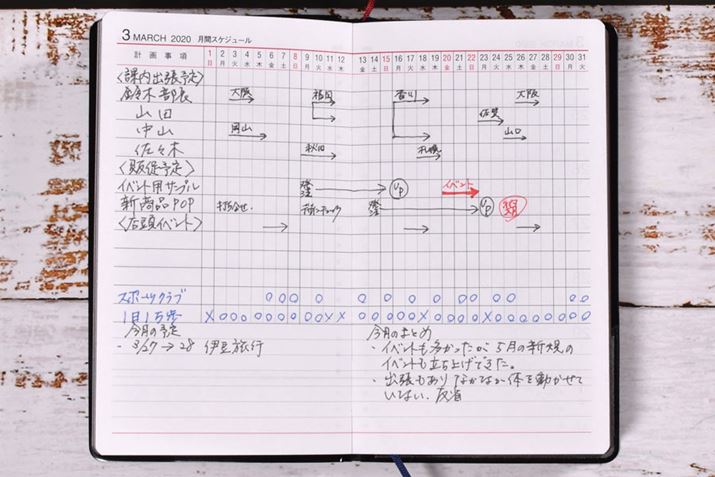 3 MARCH 2020 月間スケジュール
3 MARCH 2020
計画事項 1 2 3 4 5 6 7 8 9 10 11 12 13 14 15 16 17 18 19 20 21 22 23 24 25 26 27 28 29 30 31
日 月 火 水 木 金 土 日 月 火 水 木 金 土 日 月 火 水 木 金 土 日 月 火 水 木 金 土 日 月 火
〈課内出張予定〉
鈴木部長 大阪 福岡 香川 大阪
山田 佐賀
中山 岡山 山口
佐々木 秋田 札幌
〈販促予定〉
イベント用サンプル UP イベント
新商品POP 打合せ. UP
〈店頭イベント〉
スポーツクラブ ○ ○ ○ ○ ○ ○ ○ ○ ○ ○ ○ ○ ○ ○ ○
1日1万歩 X ○ ○ ○ ○ ○ ○ ○ ○ ○ X X ○ ○ ○ ○ ○ X ○ ○ ○ ○ ○ ○ ○ ○ ○ ○ ○ ○ ○
今月の予定
・3/27→28 伊豆旅行
今月のまとめ
・イベントも多かったが 5月の新規の
イベントも立ち上げできた。
・出張もあり なかなか体を動かせて
いない. 反省